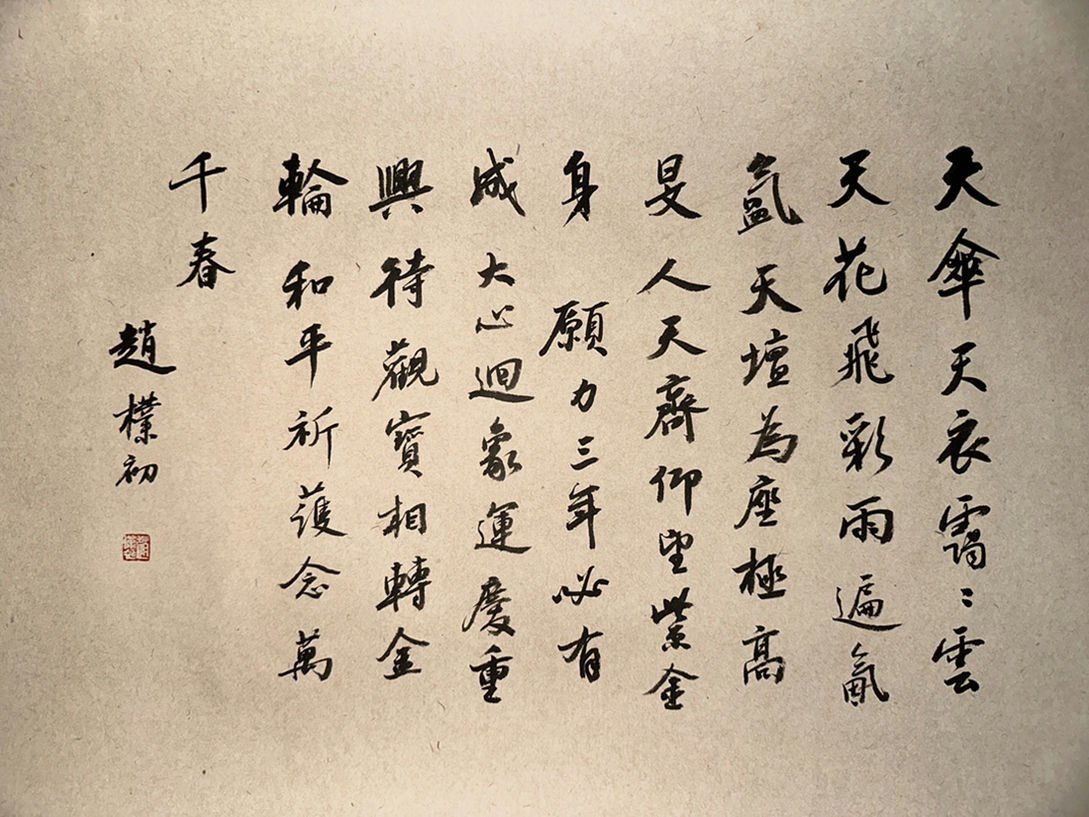 天傘天衣靄〻雲
天花飛彩雨遍氤
氳天壇為座極高
旻人天齊仰望紫金
身 願力三年必有
成大心迴象運慶重
興待觀寶相轉金
輪和平祈護念萬
千春
趙樸初